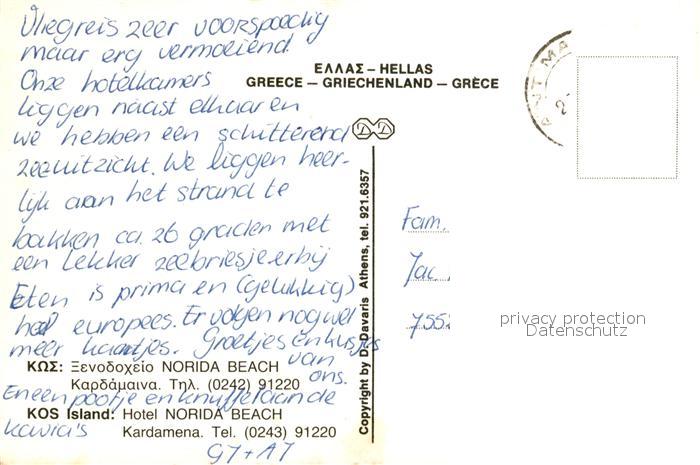 Vliegreis zeer voorspoedig
maar erg vermoeiend.
Onze hotelkamers
liggen naast elkaar en
we hebben een schitterend
zeeuitzicht. We liggen heer-
lijk aan het strand te
bakken ca. 26 graden met
een lekker zeebriesje erbij
Eten is prima en (gelukkig)
heel europees. Er volgen nog wel
meer kaartjes. Groetjes en kusjes
van
ons.
En een pootje en knuffel aan de
cavia's
GY + AY
ΕΛΛΑΣ – HELLAS
GREECE – GRIECHENLAND – GRÈCE
ΚΩΣ: Ξενοδοχείο NORIDA BEACH
Καρδάμαινα. Τηλ. (0242) 91220
KOS Island: Hotel NORIDA BEACH
Kardamena. Tel. (0243) 91220
Copyright by D. Davaris Athens, tel. 921.6357
Fam.
Jac.
755
privacy protection
Datenschutz